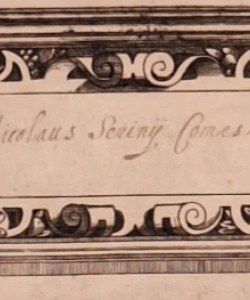 Nicolaus Seriny Comes